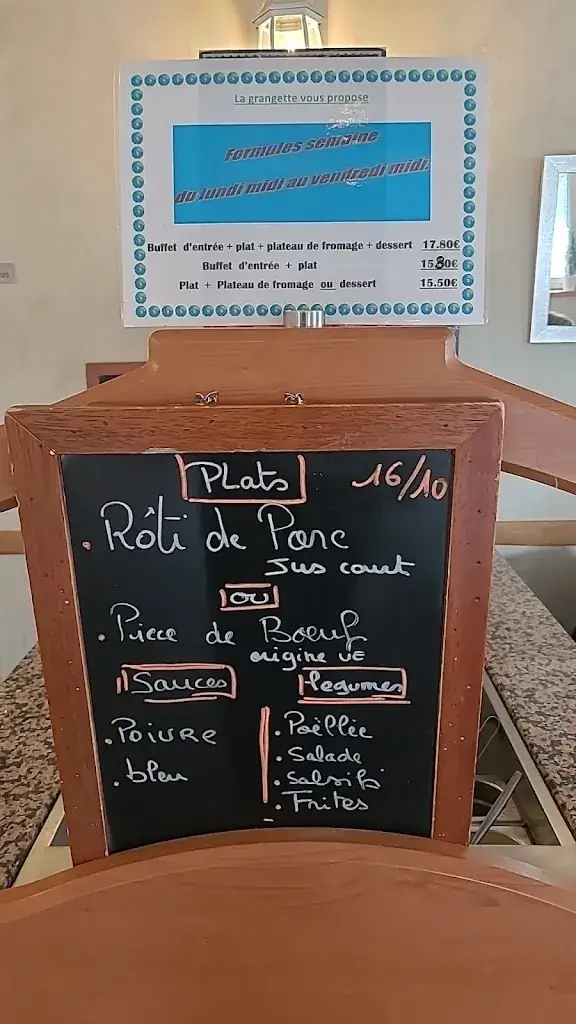 La grangette vous propose
Formules semaine
du lundi midi au vendredi midi.
Buffet d'entrée + plat + plateau de fromage + dessert 17.80€
Buffet d'entrée + plat 15.80€
Plat + Plateau de fromage ou dessert 15.50€
PLats 16/10
. Rôti de Porc
Jus court
ou
. Piece de Boeuf
origine UE
Sauces légumes
. POIVRE
. bleu
. Poêllée
. Salade
. Salsifis
. Frites